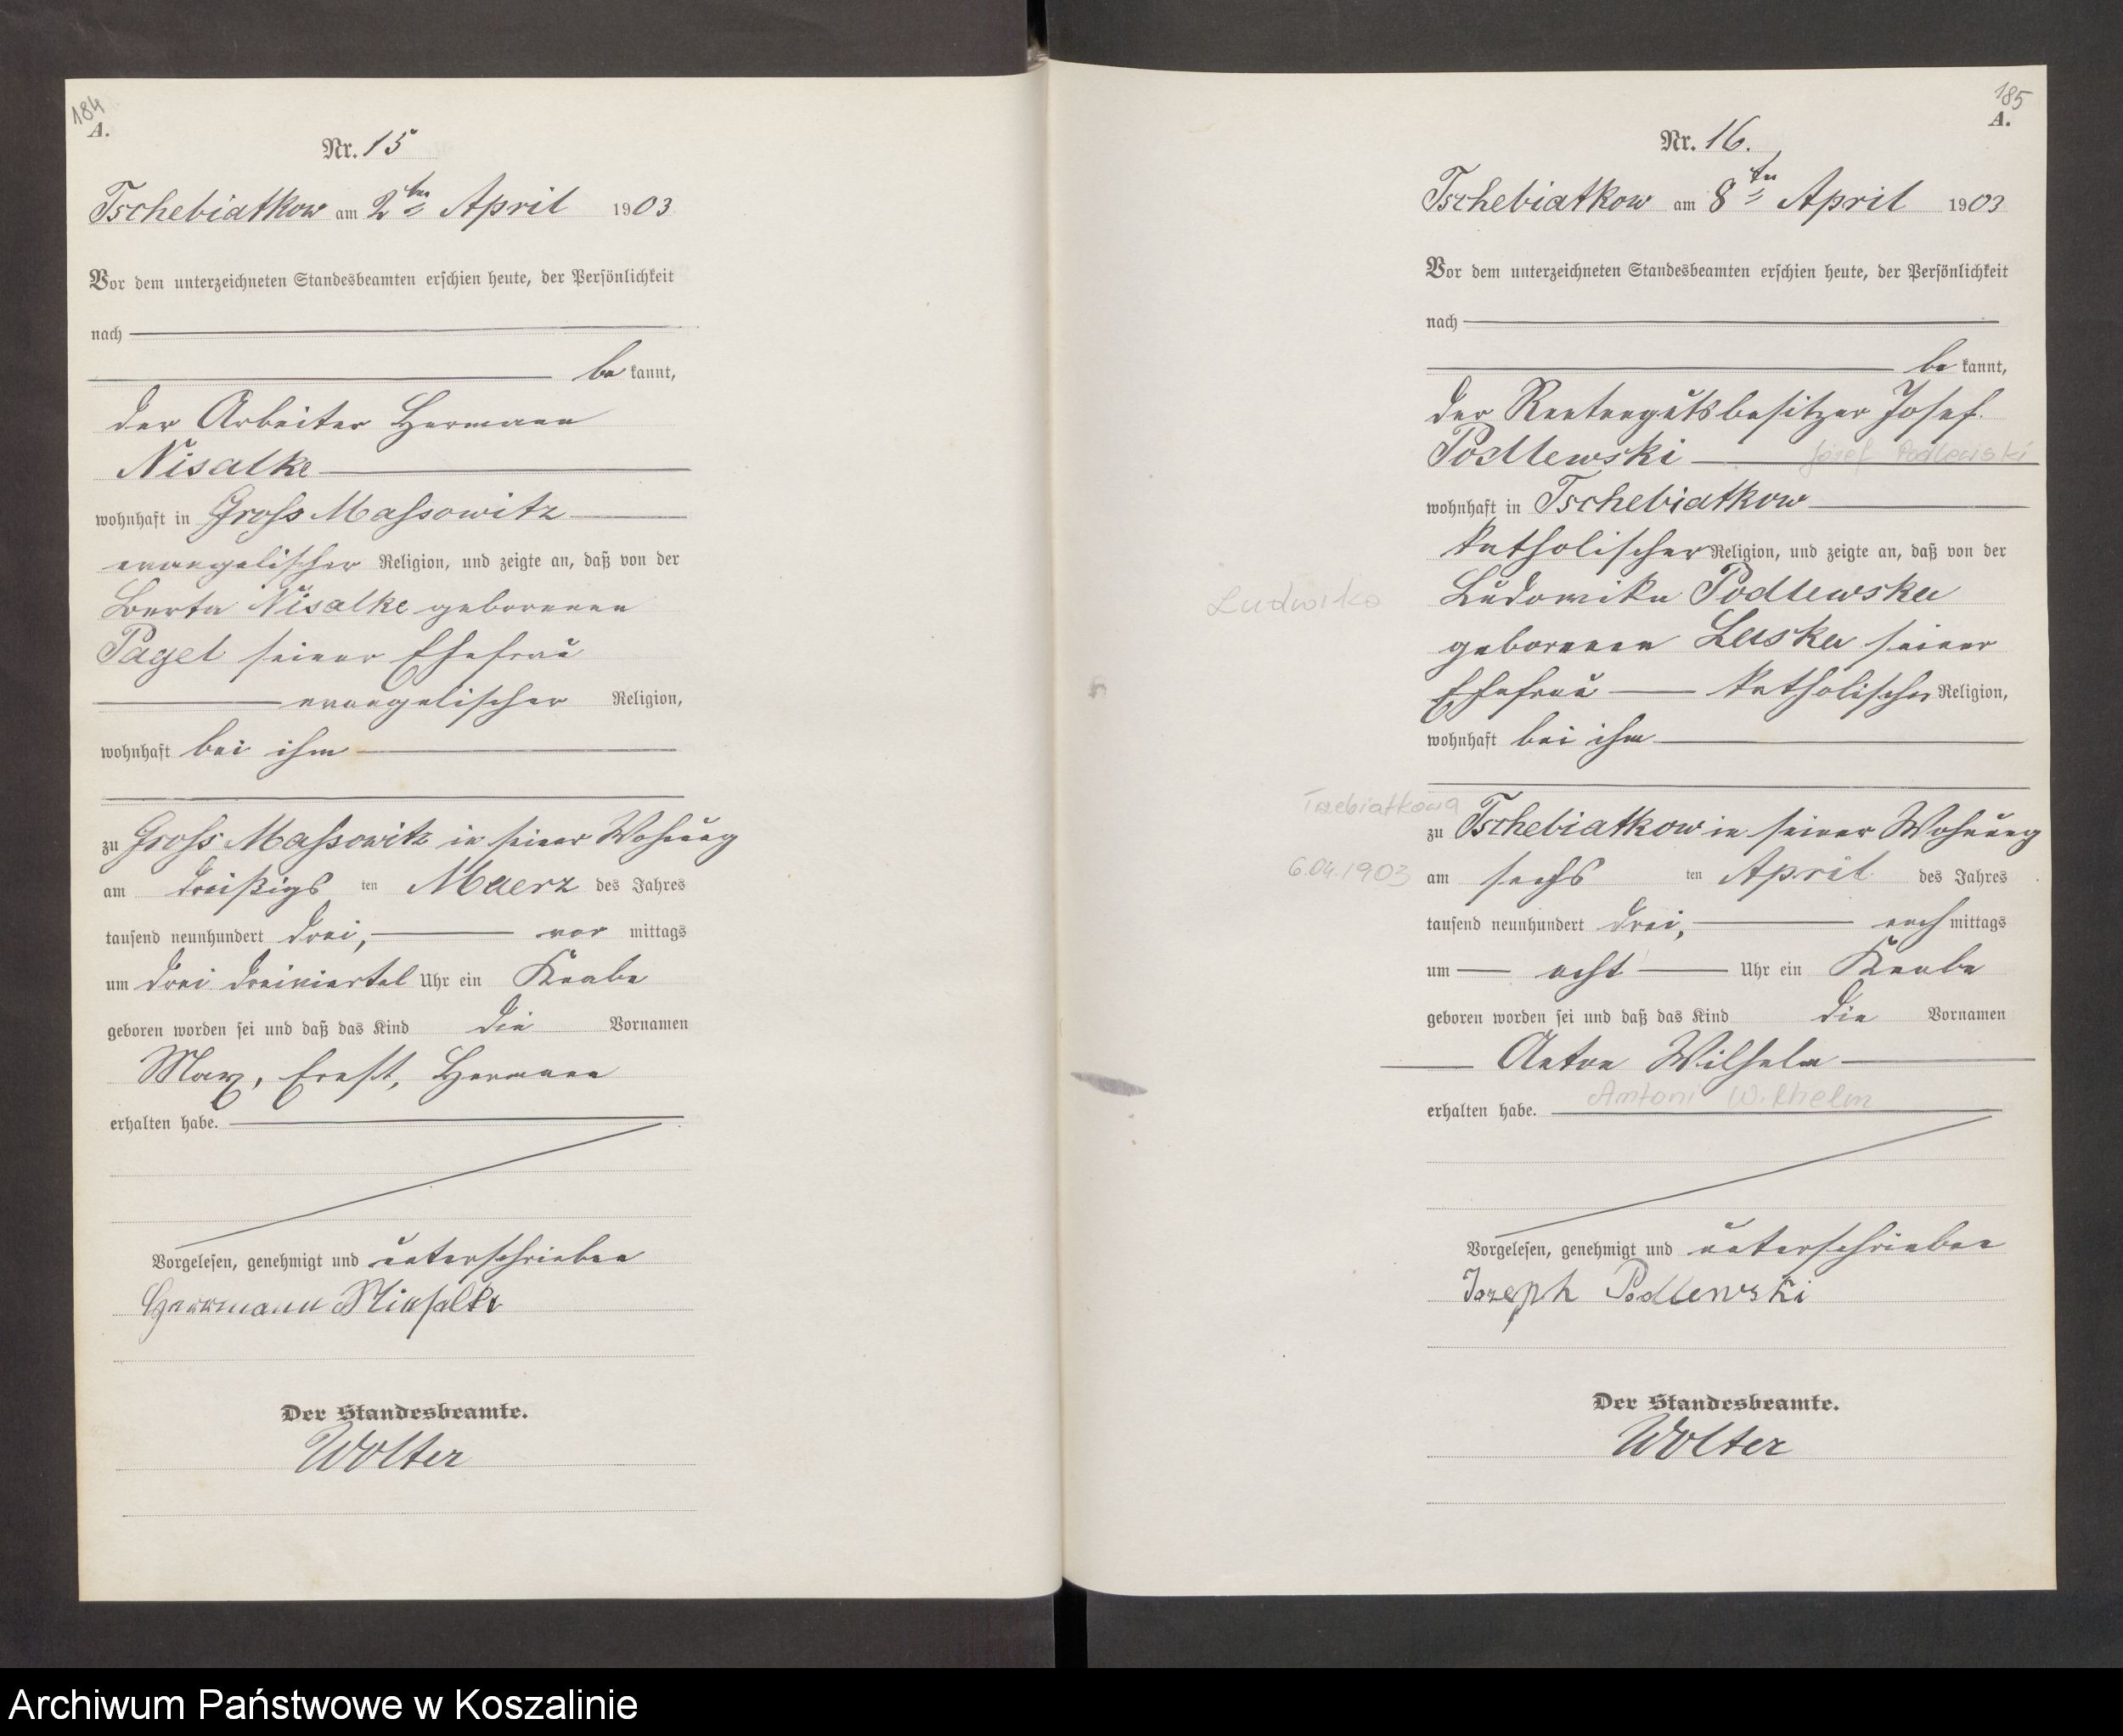 184
A.
Nr. 15
Tschebiatkow am 2ten April 1903
Vor dem unterzeichneten Standesbeamten erschien heute, der Persönlichkeit
nach
be kannt,
der Arbeiter Hermann
Nisalke
wohnhaft in Gross Massowitz
evangelischer Religion, und zeigte an, daß von der
Berta Nisalke geborenen
Pagel seiner Ehefrau
evangelischer Religion,
wohnhaft bei ihm
zu Gross Massowitz in seiner Wohnung
am dreißigs ten Maerz des Jahres
tausend neunhundert drei, vor mittags
um drei dreiviertel Uhr ein Knabe
geboren worden sei und daß das Kind die Vornamen
Max, Ernst, Hermann
erhalten habe.
Vorgelesen, genehmigt und unterschrieben
Herrmann
Der Standesbeamte.
Wolter
185
A.
Nr. 16.
Tschebiatkow am 8ten April 1903
Vor dem unterzeichneten Standesbeamten erschien heute, der Persönlichkeit
nach
be kannt,
der Rentengutsbesitzer Josef
Podlewski Józef Podlewski
wohnhaft in Tschebiatkow
katholischer Religion, und zeigte an, daß von der
Ludwika Ludowika Podlewska
geborenen Laska seiner
Ehefrau katholischer Religion,
wohnhaft bei ihm
Trzebiatkowa
zu Tschebiatkow in seiner Wohnung
6.04.1903 am sechs ten April des Jahres
tausend neunhundert drei, nach mittags
um acht Uhr ein Knabe
geboren worden sei und daß das Kind die Vornamen
Anton Wilhelm
Antoni Wilhelm
erhalten habe.
Vorgelesen, genehmigt und unterschrieben
Jozeph Podlewski
Der Standesbeamte.
Wolter
Archiwum Państwowe w Koszalinie